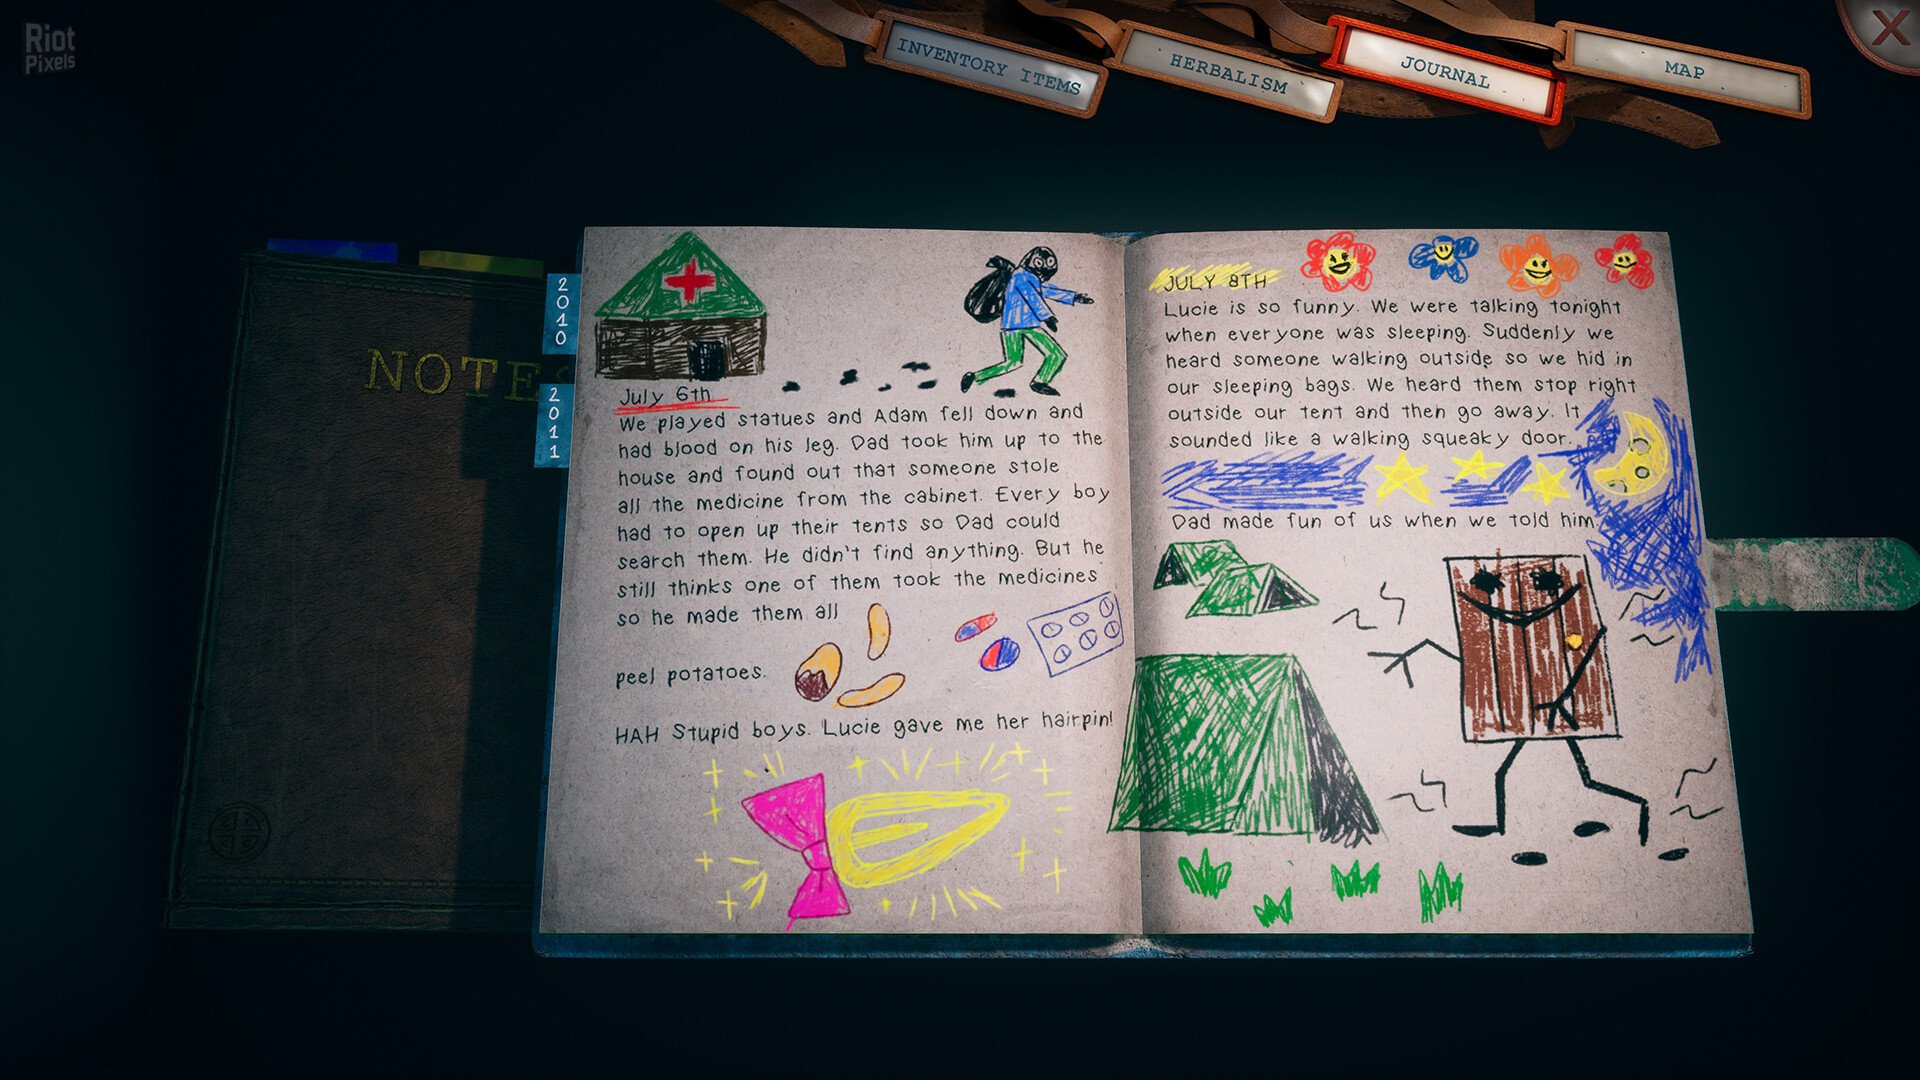 Riot
Pixels
INVENTORY ITEMS
HERBALISM
JOURNAL
MAP
X
NOTE
2010
2011
July 6th
We played statues and Adam fell down and
had blood on his leg. Dad took him up to the
house and found out that someone stole
all the medicine from the cabinet. Every boy
had to open up their tents so Dad could
search them. He didn't find anything. But he
still thinks one of them took the medicines
so he made them all
peel potatoes.
HAH Stupid boys. Lucie gave me her hairpin!
JULY 8TH
Lucie is so funny. We were talking tonight
when everyone was sleeping. Suddenly we
heard someone walking outside so we hid in
our sleeping bags. We heard them stop right
outside our tent and then go away. It
sounded like a walking squeaky door.
Dad made fun of us when we told him.